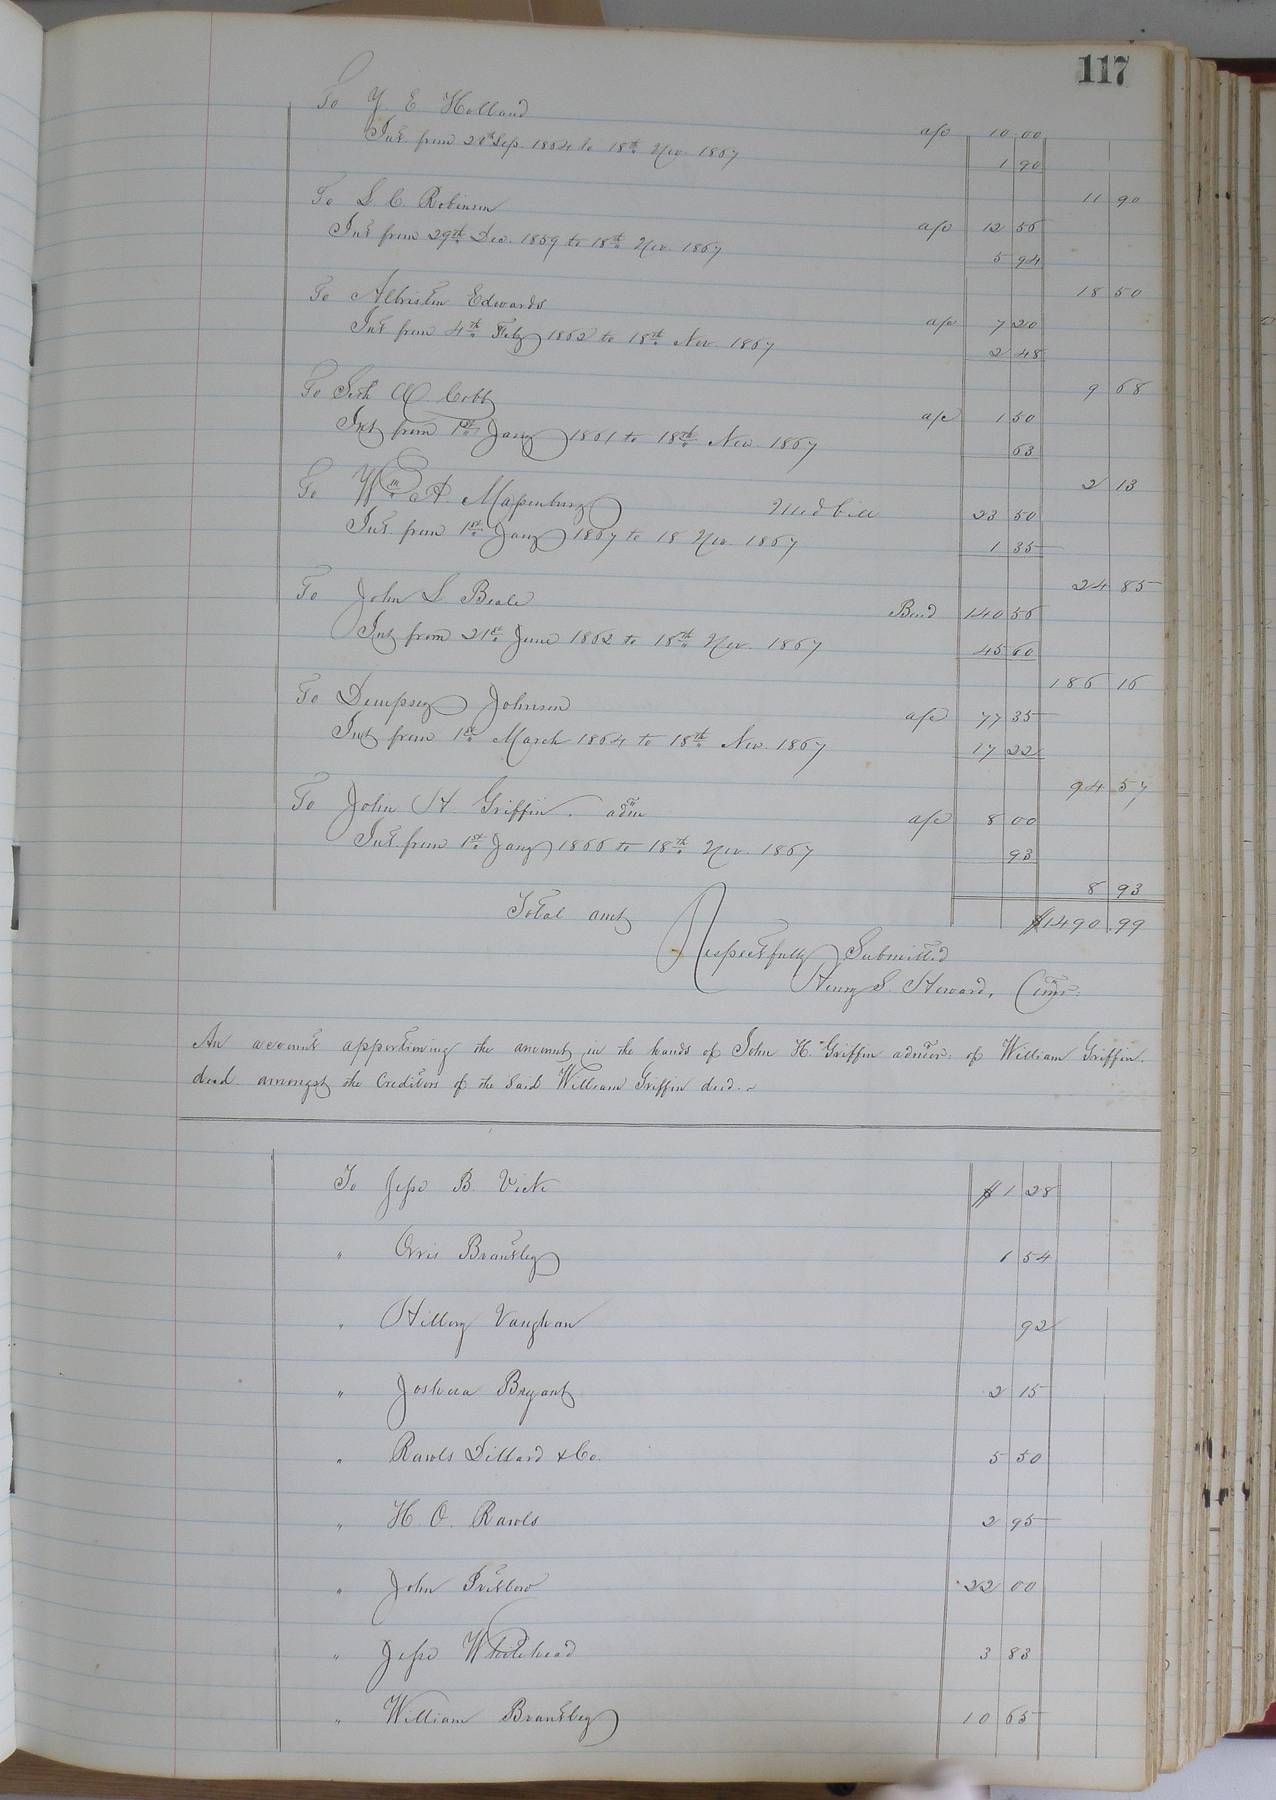 117
To Y. E. Holland a/c 10 00
Int. from 28th Sep. 1864 to 18th Nov. 1867 1 90
11 90
To S. C. Robinson a/c 12 56
Int from 29th Dec. 1859 to 18th Nov. 1867 5 94
18 50
To Edwards a/c 7 20
Int from 4th Feby 1862 to 18th Nov. 1867 2 48
9 68
To Cobb a/c 1 50
Int from 1st Jany 1861 to 18th Nov. 1867 63
2 13
To Wm. A. Massenburg Med bill 23 50
Int. from 1st Jany 1867 to 18 Nov. 1867 1 35
24 85
To John S. Beale Bond 140 56
Int from 21st June 1862 to 18th Nov. 1867 45 60
186 16
To Dempsey Johnson a/c 77 35
Int from 1st March 1864 to 18th Nov. 1867 17 22
94 57
To John H. Griffin. admr a/c 8 00
Int. from 1st Jany 1866 to 18th Nov. 1867 93
8 93
Total amt $1490.99
Respectfully Submitted
Henry S. Howard, Comr.
An account apportioning the amount in the hands of John H. Griffin admtor. of William Griffin.
decd. amongst the Creditors of the said William Griffin decd. ~
To Jesse B. Vick $1 28
" Orris Brantley 1 54
" Hillory Vaughan 92
" Joshua Bryant 2 15
" Rawls Dillard & Co. 5 50
" H. O. Rawls 2 95
" John Pretlow 22 00
" Jesse Whitehead 3 83
" William Brantley 10 65